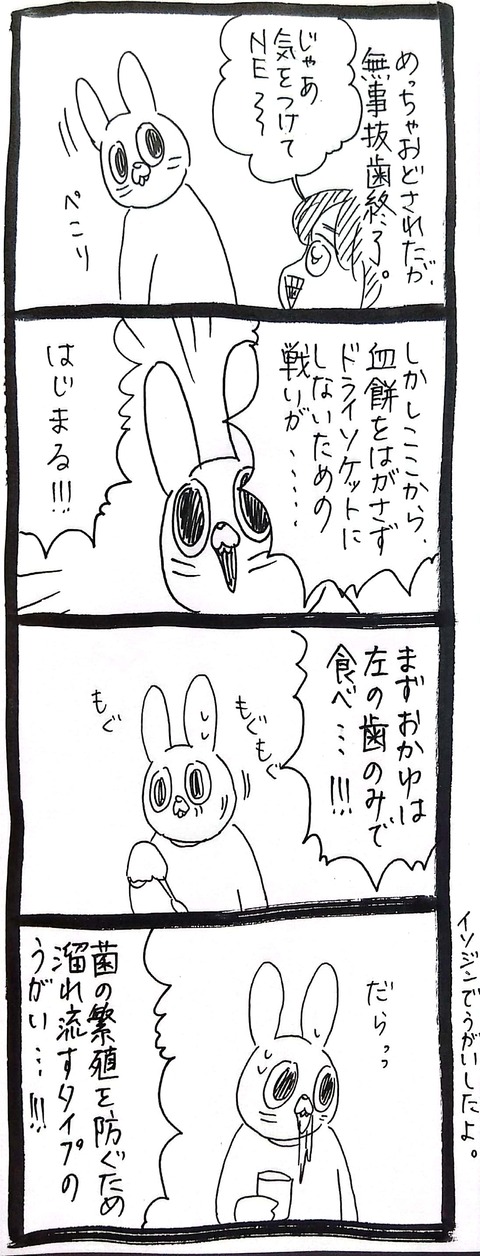 めっちゃおどされたが、
無事抜歯終了。
じゃあ
気をつけて
NE〜〜
ぺこり
しかしここから、
血餅をはがさず
ドライソケットに
しないための
戦いが、……
はじまる!!!
まずおかゆは
左の歯のみで
食べ…!!!
もぐもぐ
もぐ
だらっっ
菌の繁殖を防ぐため
溜れ流すタイプの
うがい…!!!
イソジンでうがいしたよ。